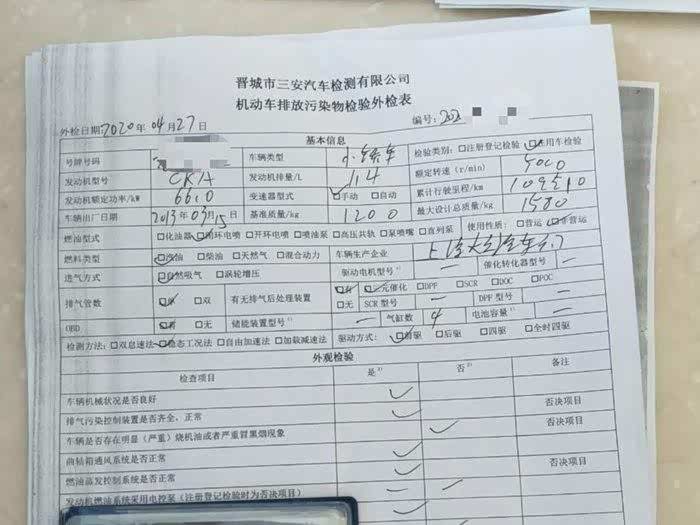 晋城市三安汽车检测有限公司
机动车排放污染物检验外检表
外检日期:2020年04月27日 编号:202
基本信息
号牌号码 车辆类型 小轿车 检验类别:□注册登记检验 ☑在用车检验
发动机型号 CKA 发动机排量/L 1.4 额定转速(r/min) 5000
发动机额定功率/kW 66.0 变速器型式 ☑手动 □自动 累计行驶里程/km
车辆出厂日期 2013年03月15日 基准质量/kg 1200 最大设计总质量/kg 1580
燃油型式 □化油器 ☑闭环电喷 □开环电喷 □喷油泵 □高压共轨 □泵喷嘴 □直列泵 使用性质:□营运 ☑非营运
燃料类型 ☑汽油 □柴油 □天然气 □混合动力 车辆生产企业 上海大众汽车
进气方式 ☑自然吸气 □涡轮增压 驱动电机型号 — 催化转化器型号 —
排气管数 ☑单 □双 有无排气后处理装置 ☑有 ☑三元催化 □DPF □SCR □DOC □POC
□无 SCR型号 — DPF型号 —
OBD ☑有 □无 储能装置型号 — 气缸数 4 电池容量 —
检测方法:□双怠速法 ☑稳态工况法 □自由加速法 □加载减速法 驱动方式:☑前驱 □后驱 □四驱 □全时四驱
外观检验
检查项目 是 否 备注
车辆机械状况是否良好 ✓
排气污染控制装置是否齐全,正常 ✓ 否决项目
车辆是否存在明显(严重)烧机油或者严重冒黑烟现象 ✓ 否决项目
曲轴箱通风系统是否正常 ✓
燃油蒸发控制系统是否正常 ✓ 否决项目
发动机燃油系统采用电控泵(注册登记检验时为否决项目) — —